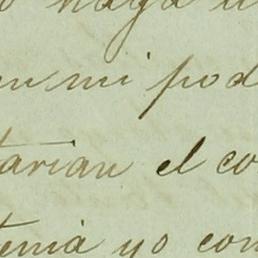 o haga u
en mi pod
tarian el co
tenia yo con